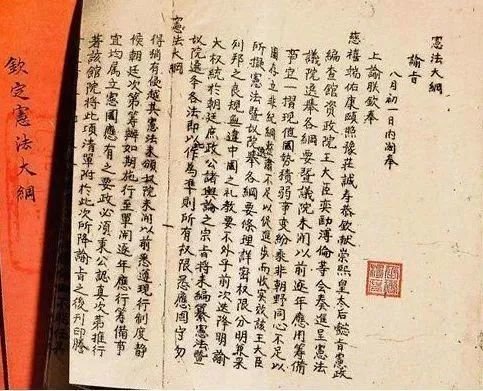 憲法大綱
諭旨
八月初一日內閣奉
上諭朕欽奉
慈禧端佑康頤照豫莊誠壽恭欽獻崇熙皇太后懿旨憲政
編查館資政院王大臣奕劻溥倫等會奏進呈憲法
議院選舉各綱要暨議院未開以前逐年應行籌備
事宜一摺現值國勢積弱事變紛乘非朝野同心不足以
圖存立非紀綱整肅不足以促進步而收實效該王大臣
所擬憲法暨議院選舉各綱要條理詳密權限分明兼采
列邦之良規無違中國之禮教要不外乎前次迭降明諭
大權統於朝廷庶政公諸輿論之宗旨將來編纂憲法暨
議院選舉各法即以作為準則所有權限悉應固守勿
憲法大綱
得稍有侵越其憲法未頒議院未開以前悉遵現行制度靜
候朝廷次第籌辦如期施行至單開逐年應行籌備事
宜均屬立憲國應有之要政必須秉公認真次第推行
著該館院將此項清單附於此次所降諭旨之後刊印謄
欽定憲法大綱